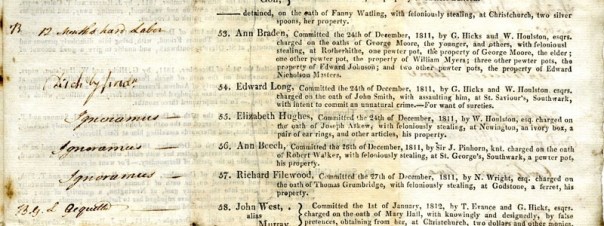 — detained, on the oath of Fanny Watling, with feloniously stealing, at Christchurch, two silver
spoons, her property.
12 Months hard Labor
53. Ann Braden, Committed the 24th of December, 1811, by G. Hicks and W. Houlston, esqrs.
charged on the oaths of George Moore, the younger, and others, with feloniously
stealing, at Rotherhithe, one pewter pot, the property of George Moore, the elder;
one other pewter pot, the property of William Myers; three other pewter pots, the
property of Edward Johnson; and two other pewter pots, the property of Edward
Nicholson Masters.
54. Edward Long, Committed the 24th of December, 1811, by G. Hicks and W. Houlston, esqrs.
charged on the oath of John Smith, with assaulting him, at St. Saviour's, Southwark,
with intent to commit an unnatural crime.—For want of sureties.
Ignoramus —
55. Elizabeth Hughes, Committed the 24th of December, 1811, by W. Houlston, esq. charged
on the oath of Joseph Atkew, with feloniously stealing, at Newington, an ivory box, a
pair of ear rings, and other articles, his property.
Ignoramus —
56. Ann Beech, Committed the 26th of December, 1811, by Sir J. Pinhorn, knt. charged on the oath
of Robert Walker, with feloniously stealing, at St. George's, Southwark, a pewter pot,
his property.
Ignoramus —
57. Richard Filewood, Committed the 27th of December, 1811, by N. Wright, esq. charged on
the oath of Thomas Grambridge, with feloniously stealing, at Godstone, a ferret, his
property.
Acquitted
58. John West, Committed the 1st of January, 1812, by T. Evance and G. Hicks, esqrs.
alias charged on the oath of Mary Hall, with knowingly and designedly, by false
Murray pretences, obtaining from her, at Christchurch, two dollars and other monies,